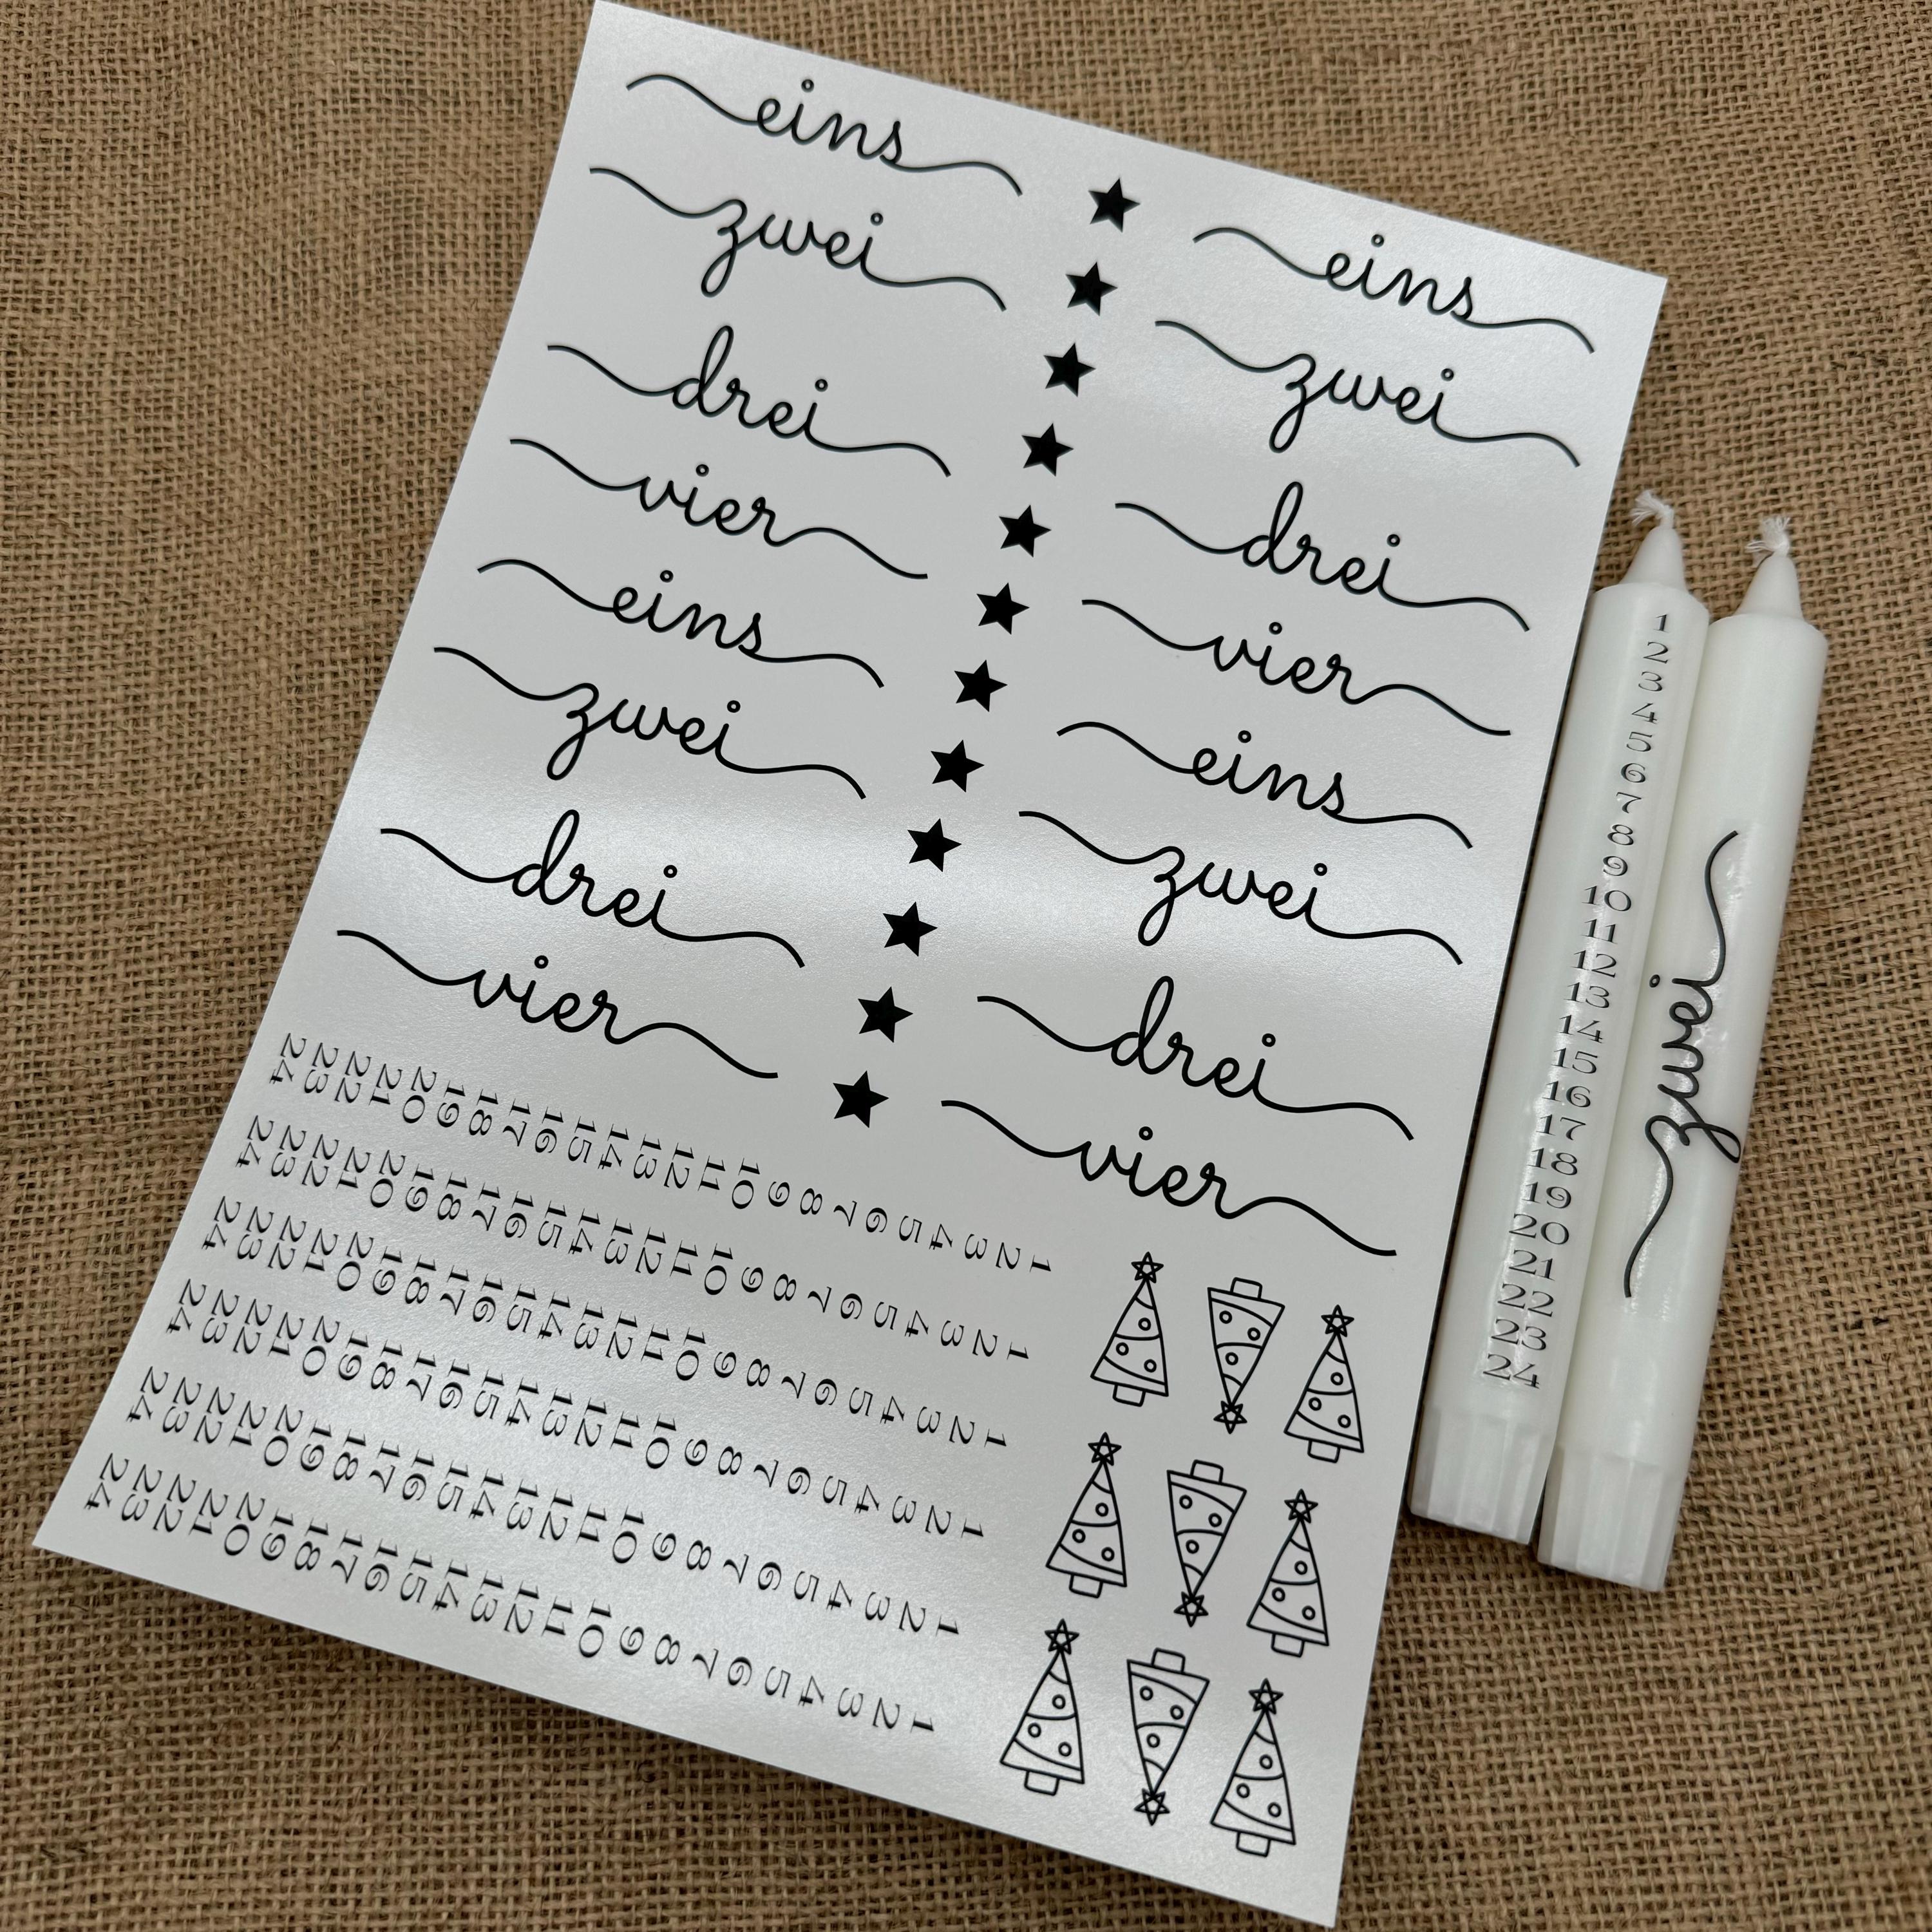 eins
zwei
drei
vier
eins
zwei
drei
vier
eins
zwei
drei
vier
eins
zwei
drei
vier
1 2 3 4 5 6 7 8 9 10 11 12 13 14 15 16 17 18 19 20 21 22 23 24
1 2 3 4 5 6 7 8 9 10 11 12 13 14 15 16 17 18 19 20 21 22 23 24
1 2 3 4 5 6 7 8 9 10 11 12 13 14 15 16 17 18 19 20 21 22 23 24
1 2 3 4 5 6 7 8 9 10 11 12 13 14 15 16 17 18 19 20 21 22 23 24
1 2 3 4 5 6 7 8 9 10 11 12 13 14 15 16 17 18 19 20 21 22 23 24
1 2 3 4 5 6 7 8 9 10 11 12 13 14 15 16 17 18 19 20 21 22 23 24
1
2
3
4
5
6
7
8
9
10
11
12
13
14
15
16
17
18
19
20
21
22
23
24
zwei